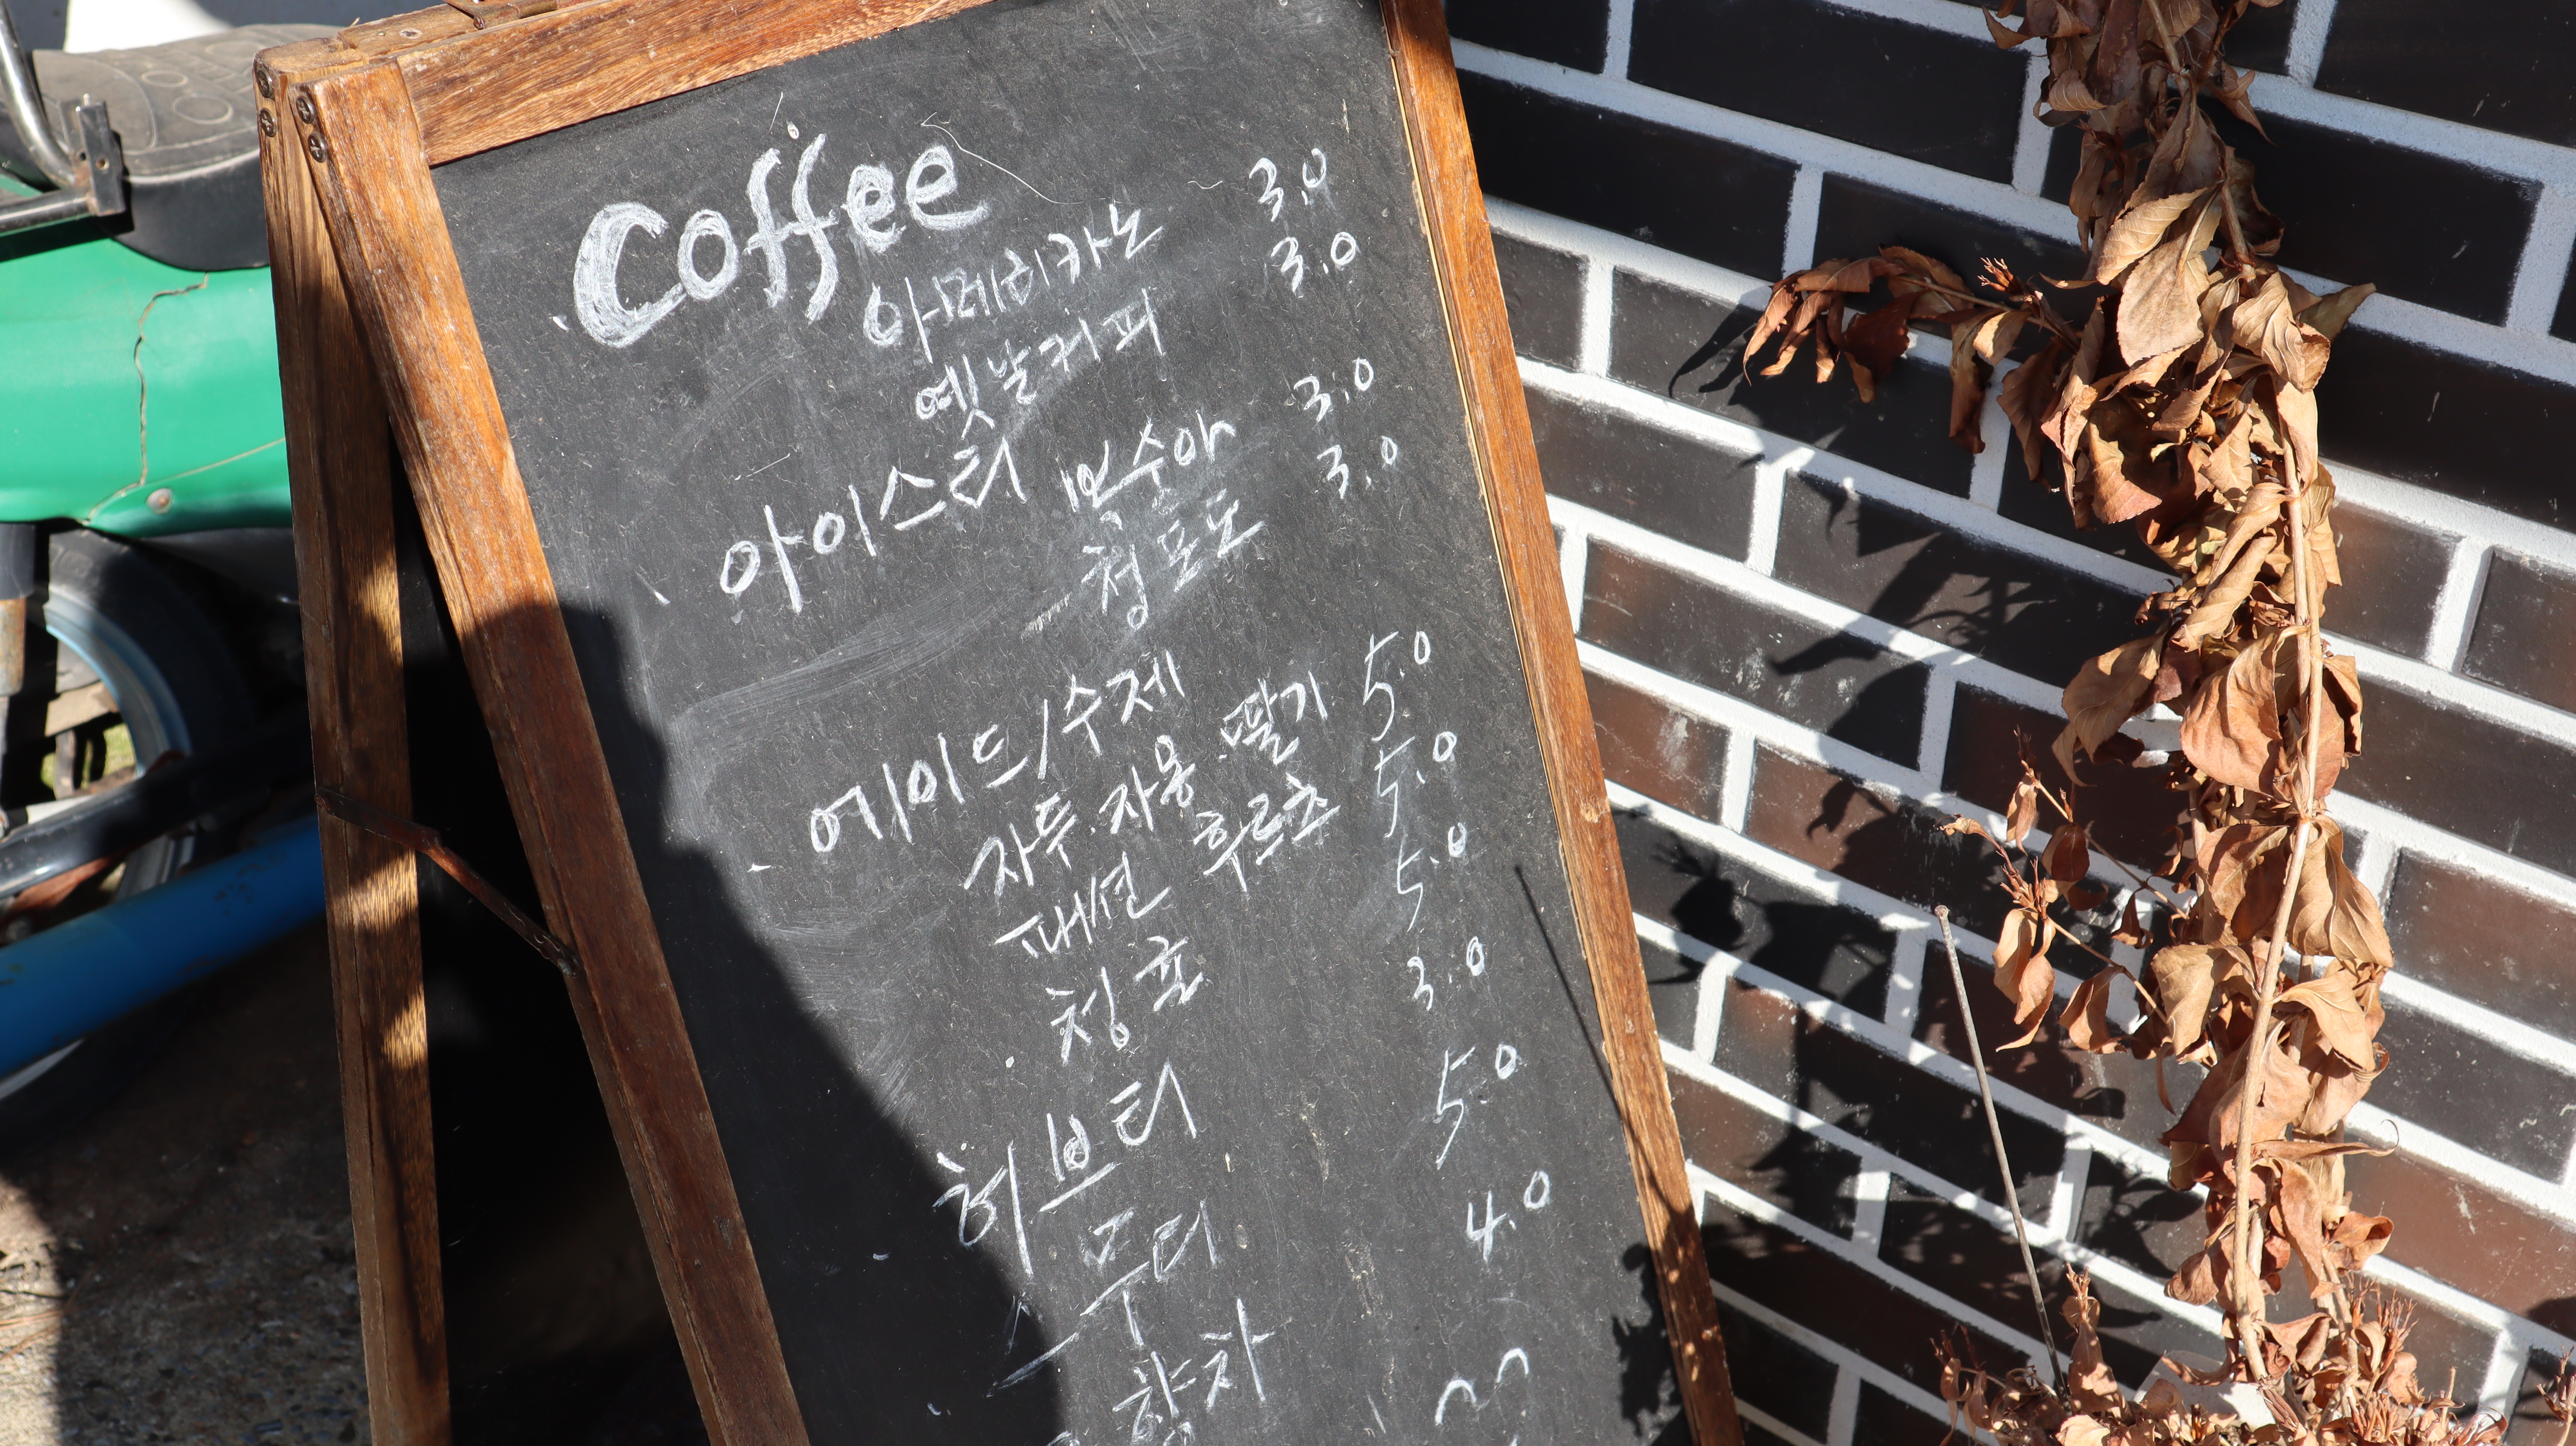 Coffee
아메리카노 3.0
옛날커피 3.0
아이스티 복숭아 3.0
청포도 3.0
에이드/수제 5.0
자두.자몽.딸기 5.0
패션 후르츠 5.0
청포 3.0
허브티 5.0
4.0
차